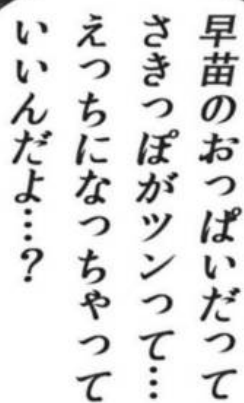 早苗のおっぱいだって
さきっぽがツンって…
えっちになっちゃって
いいんだよ…？